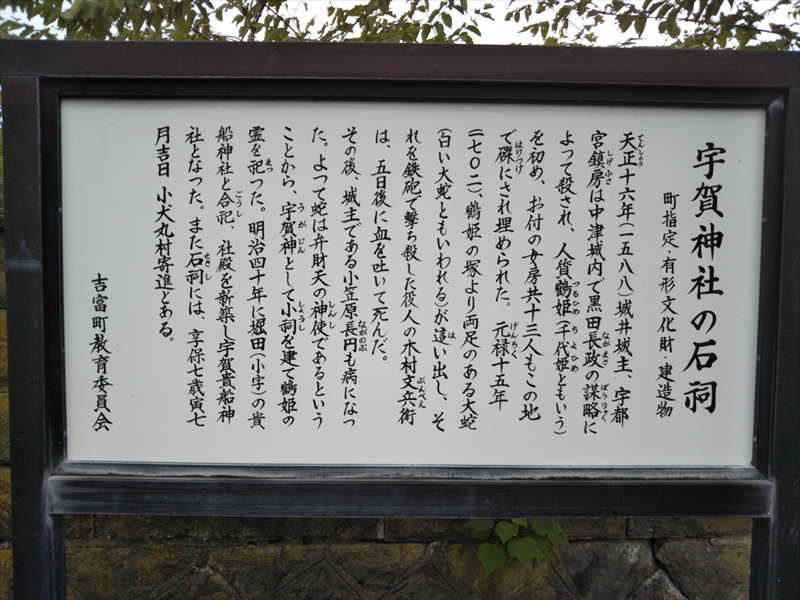 宇賀神社の石祠
町指定・有形文化財・建造物
天正十六年(一五八八)城井城主、宇都
宮鎮房は中津城内で黒田長政の謀略に
よって殺され、人質鶴姫(千代姫ともいう)
を初め、お付の女房共十三人もこの地
で磔にされ埋められた。元禄十五年
(一七〇二)、鶴姫の塚より両足のある大蛇
(白い大蛇ともいわれる)が這い出し、そ
れを鉄砲で撃ち殺した役人の木村文兵衛
は、五日後に血を吐いて死んだ。
その後、城主である小笠原長円も病になっ
た。よって蛇は弁財天の神使であるという
ことから、宇賀神として小祠を建て鶴姫の
霊を祀った。明治四十年に堀田(小字)の貴
船神社と合祀、社殿を新築し宇賀貴船神
社となった。また石祠には、享保七歳寅七
月吉日 小犬丸村寄進とある。
吉富町教育委員会